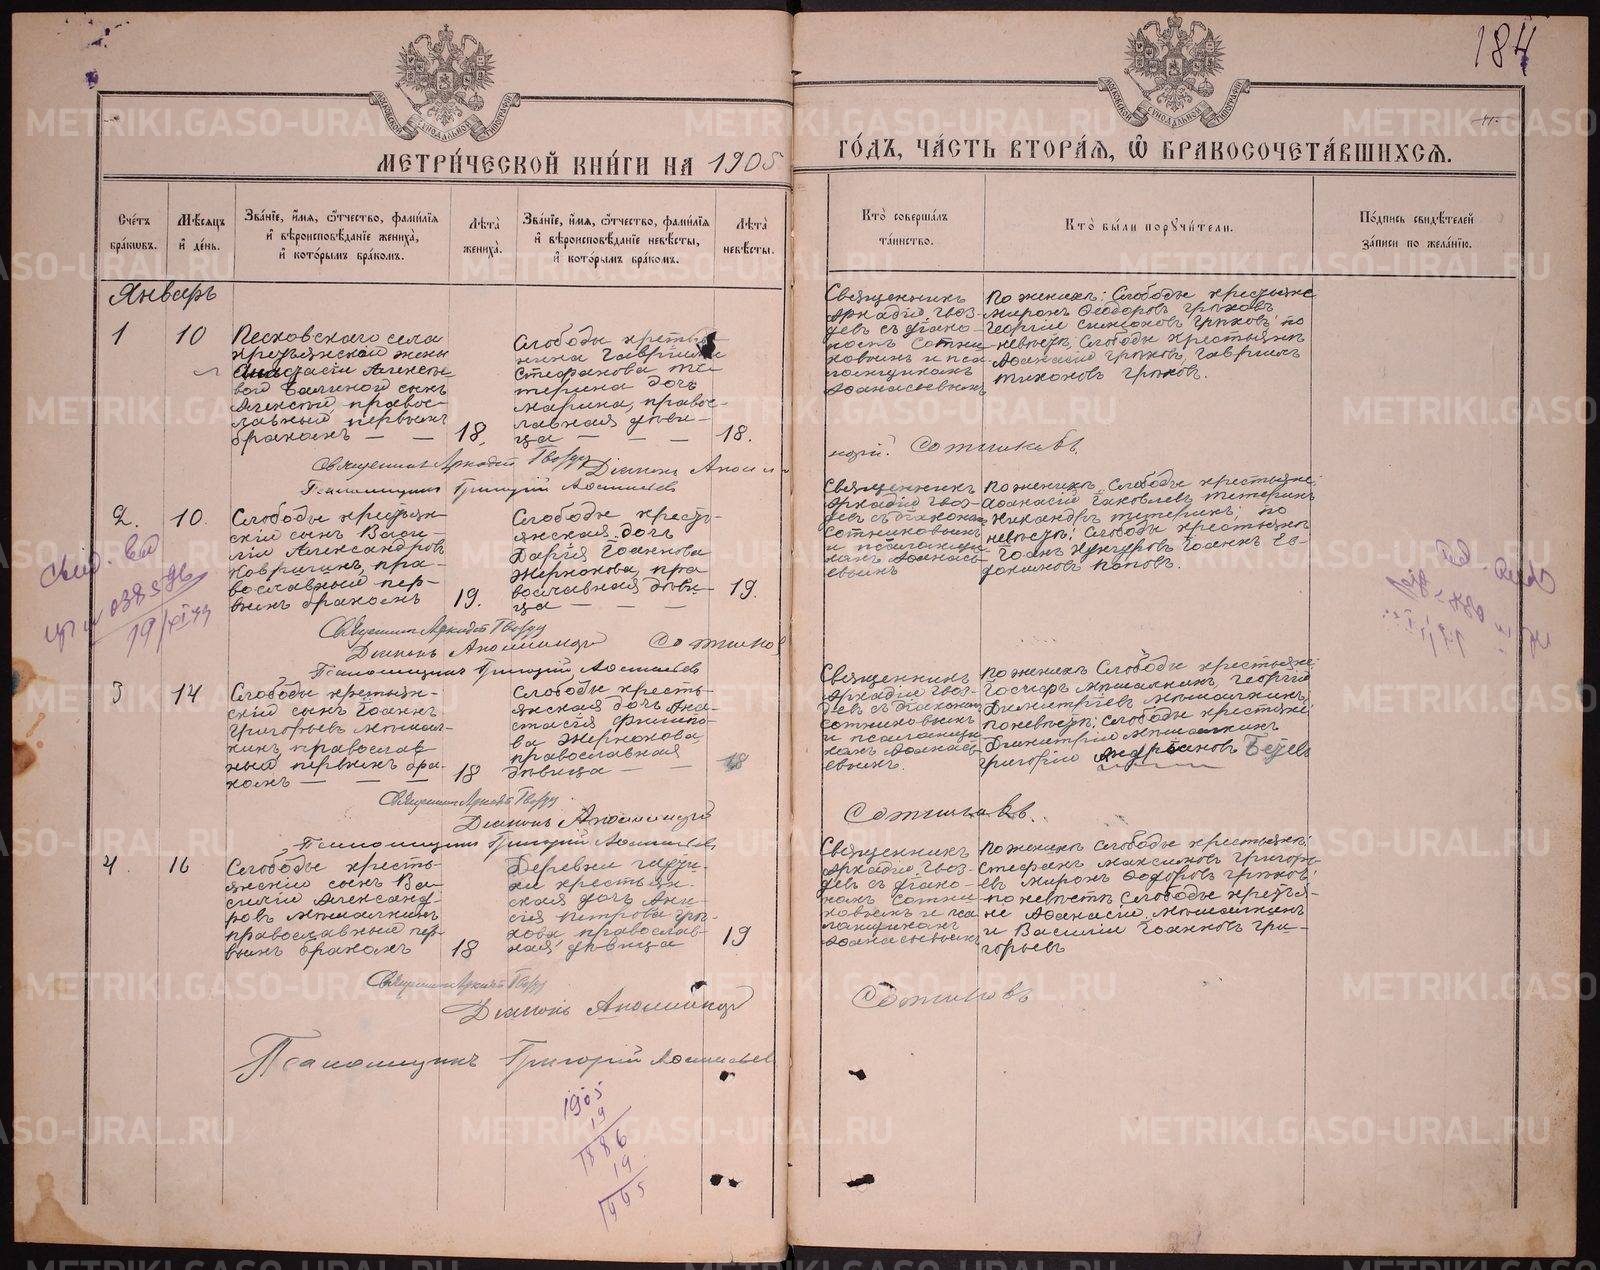 184
МЕТРИ́ЧЕСКОЙ КНИ́ГИ НА 1905
ГО́ДЪ, ЧА́СТЬ ВТОРА́Я, Ѽ БРАКОСОЧЕТА́ВШИХСЯ.
Сче́тъ бра́кѡвъ.
Мѣ́сяцъ и҆ де́нь.
Зва́нїе, и҆́мя, ѻ҆́тчество, фами́лїя
и҆ вѣроисповѣ́данїе жениха̀,
и҆ кото́рымъ бра́комъ.
Лѣ́та жениха̀.
Зва́нїе, и҆́мя, ѻ҆́тчество, фами́лїя
и҆ вѣроисповѣ́данїе невѣ́сты,
и҆ кото́рымъ бра́комъ.
Лѣ́та невѣ́сты.
Кто̀ соверша́лъ
та́инство.
Кто̀ бы́ли порꙋчи́тели.
По́дпись свидѣ́телей
за́писи по жела́нїю.
Январь
1
10
Песковскаго села
крестьянской жены
Анастасіи Алексѣе-
вой сынъ
Алексѣй, правос-
лавный, первымъ
бракомъ — —
18.
Слободы крестья-
нина Гавріила
Стефанова Те-
терина дочь
Марина, правос-
лавная дѣви-
ца — — —
18.
Священникъ
Аркадій Гвоз-
девъ съ діако-
номъ Сотни-
ковымъ и пса-
ломщикомъ
Аѳанасьевымъ
По женихѣ: Слободы крестьяне
Миронъ Ѳеодоровъ Грѣховъ
Георгій Грѣховъ; по
невѣстѣ: Слободы крестьяне
Аѳанасій Грѣховъ, Гавріилъ
Тихоновъ Грѣховъ.
Священникъ Аркадій Гвоздевъ
Діаконъ
Сотниковъ
Псаломщикъ Григорій Аѳанасьевъ
2.
10.
Слободы крестьян-
скій сынъ Васи-
лій Александровъ
пра-
вославный пер-
вымъ бракомъ
19.
Слободы кресть-
янская дочь
Дарія Іоаннова
Жернокова, пра-
вославная дѣви-
ца — — —
19.
Священникъ
Аркадій Гвоз-
девъ съ діакономъ
Сотниковымъ
и псаломщи-
комъ Аѳанась-
евымъ
По женихѣ Слободы крестьяне:
Аѳанасій Іаковлевъ Тетеринъ
Никандръ Тетеринъ; по
невѣстѣ: Слободы крестьяне
Іоаннъ Кунгуровъ Іоаннъ Ев-
докимовъ Поповъ.
Священникъ Аркадій Гвоздевъ
Діаконъ
Сотниковъ
Псаломщикъ Григорій Аѳанасьевъ
3
14
Слободы крестьян-
скій сынъ Іоаннъ
Григорьевъ Мошал-
кинъ, православ-
ный первымъ бра-
комъ — — —
18
Слободы кресть-
янская дочь Ана-
стасія Филиппо-
ва Жернокова,
православная
дѣвица — —
18
Священникъ
Аркадій Гвоз-
девъ съ діакономъ
Сотниковымъ
и псаломщи-
комъ Аѳанась-
евымъ.
По женихѣ Слободы крестьяне:
Іосифъ Мошалкинъ, Георгій
Димитріевъ Мошалкинъ,
по невѣстѣ: Слободы крестьяне:
Димитрій Мошалкинъ
Григорій
Священникъ Аркадій Гвоздевъ
Діаконъ
Сотниковъ.
Псаломщикъ Григорій Аѳанасьевъ
4.
16
Слободы кресть-
янскій сынъ Ва-
силій Александ-
ровъ Мошалкинъ
православный пер-
вымъ бракомъ
18
Деревни
крестьян-
ская дочь Ани-
сія Петрова Грѣ-
хова православ-
ная, дѣвица
19
Священникъ
Аркадій Гвоз-
девъ съ діако-
номъ Сотни-
ковымъ и пса-
ломщикомъ
Аѳанасьевымъ
По женихѣ Слободы крестьяне:
Стефанъ Максимовъ Григорь-
евъ Миронъ Ѳеодоровъ Грѣховъ;
по невѣстѣ Слободы крестья-
не Аѳанасій Мошалкинъ
и Василій Іоанновъ Гри-
горьевъ
Священникъ Аркадій Гвоздевъ
Діаконъ
Сотниковъ
Псаломщикъ Григорій Аѳанасьевъ
1905
19
1886
19
METRIKI.GASO-URAL.RU